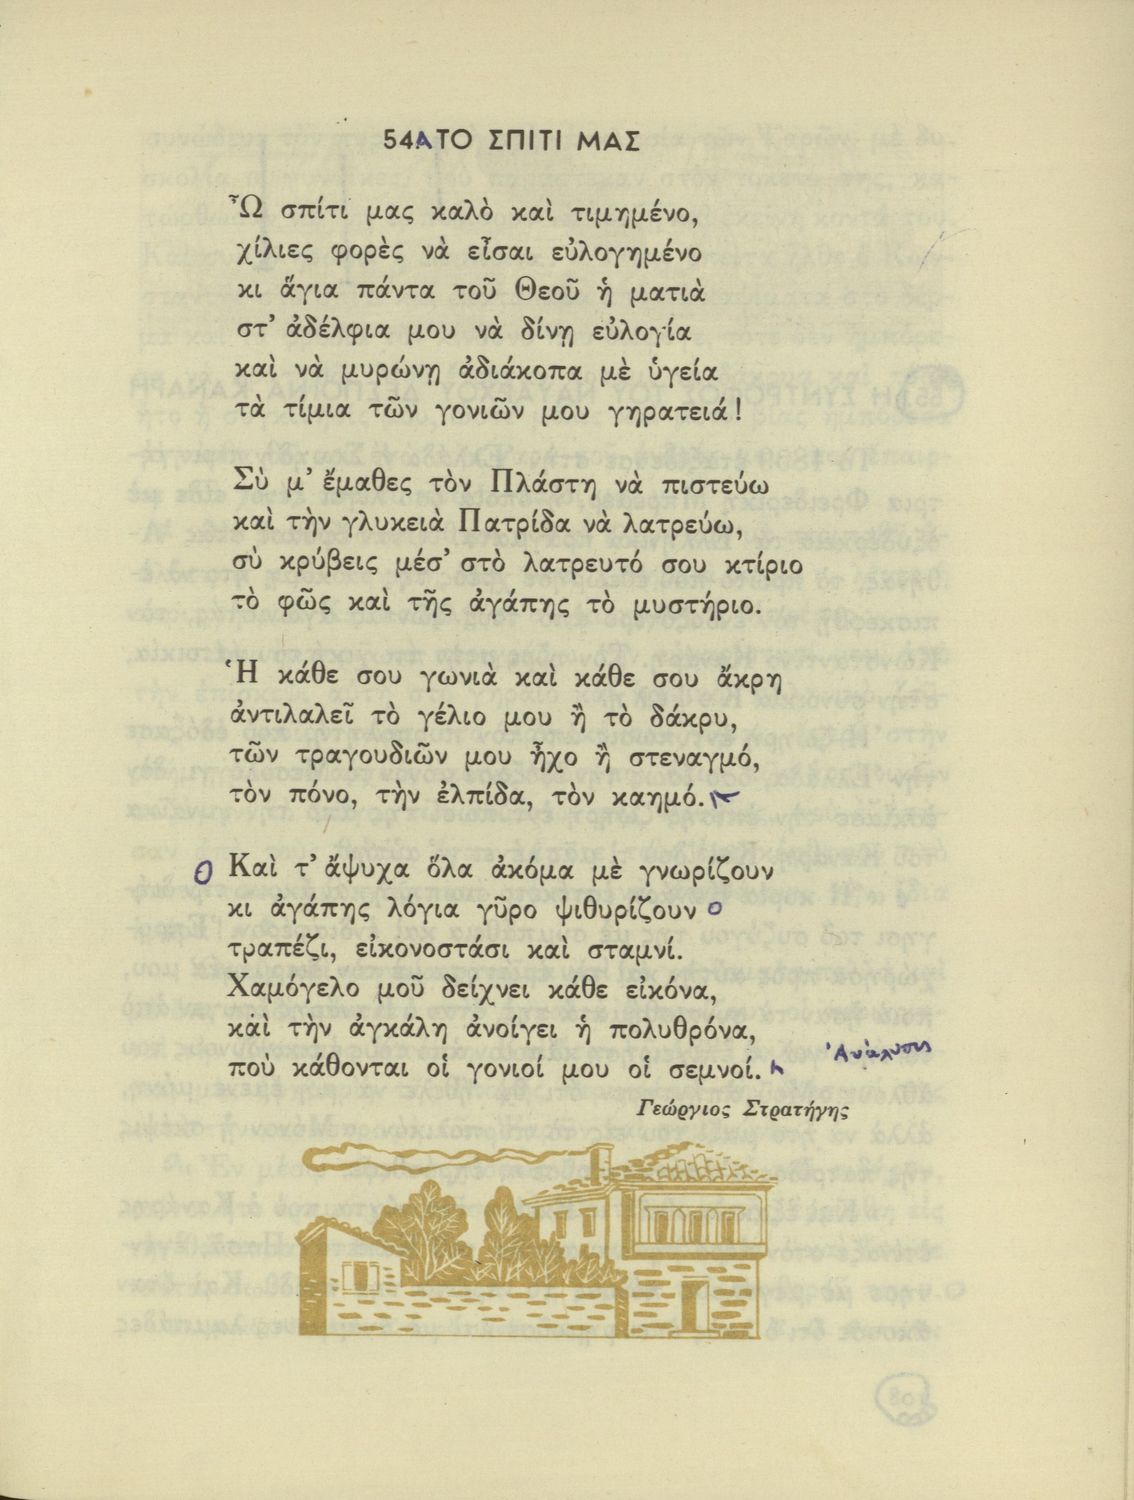 54. ΤΟ ΣΠΙΤΙ ΜΑΣ
Ὦ σπίτι μας καλὸ καὶ τιμημένο,
χίλιες φορὲς νὰ εἶσαι εὐλογημένο
κι ἅγια πάντα τοῦ Θεοῦ ἡ ματιὰ
στ' ἀδέλφια μου νὰ δίνῃ εὐλογία
καὶ νὰ μυρώνῃ ἀδιάκοπα μὲ ὑγεία
τὰ τίμια τῶν γονιῶν μου γηρατειά!
Σὺ μ' ἔμαθες τὸν Πλάστη νὰ πιστεύω
καὶ τὴν γλυκειὰ Πατρίδα νὰ λατρεύω,
σὺ κρύβεις μέσ' στὸ λατρευτό σου κτίριο
τὸ φῶς καὶ τῆς ἀγάπης τὸ μυστήριο.
Ἡ κάθε σου γωνιὰ καὶ κάθε σου ἄκρη
ἀντιλαλεῖ τὸ γέλιο μου ἢ τὸ δάκρυ,
τῶν τραγουδιῶν μου ἦχο ἢ στεναγμό,
τὸν πόνο, τὴν ἐλπίδα, τὸν καημό.
Καὶ τ' ἄψυχα ὅλα ἀκόμα μὲ γνωρίζουν
κι ἀγάπης λόγια γῦρο ψιθυρίζουν
τραπέζι, εἰκονοστάσι καὶ σταμνί.
Χαμόγελο μοῦ δείχνει κάθε εἰκόνα,
καὶ τὴν ἀγκάλη ἀνοίγει ἡ πολυθρόνα,
ποὺ κάθονται οἱ γονιοί μου οἱ σεμνοί.
Ἀνάλυσις
Γεώργιος Στρατήγης